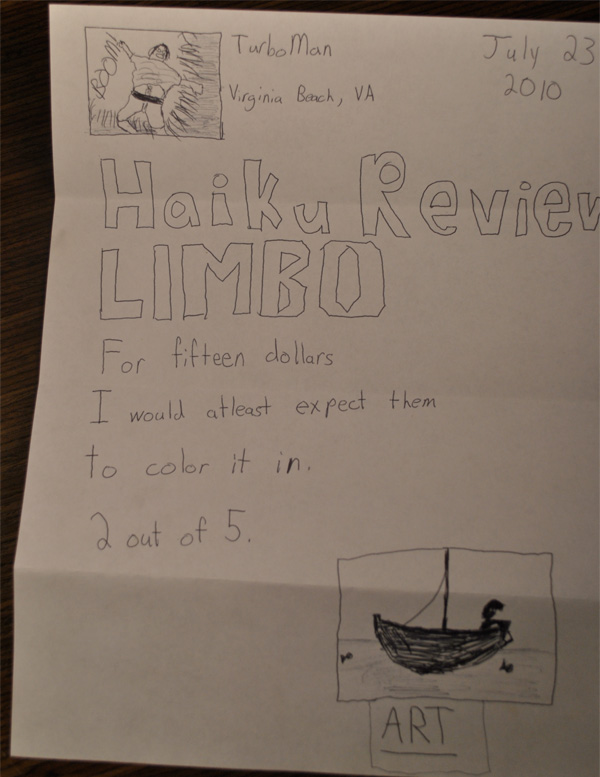 BOOM!
TurboMan
Virginia Beach, VA
July 23
2010
Haiku Review
LIMBO
For fifteen dollars
I would atleast expect them
to color it in.
2 out of 5.
ART